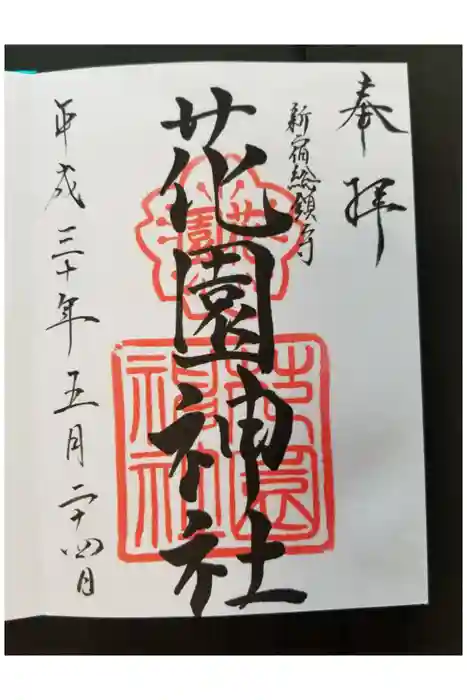 奉拝
新宿総鎮守
花園神社
花園
花園神社
平成三十年五月二十四日